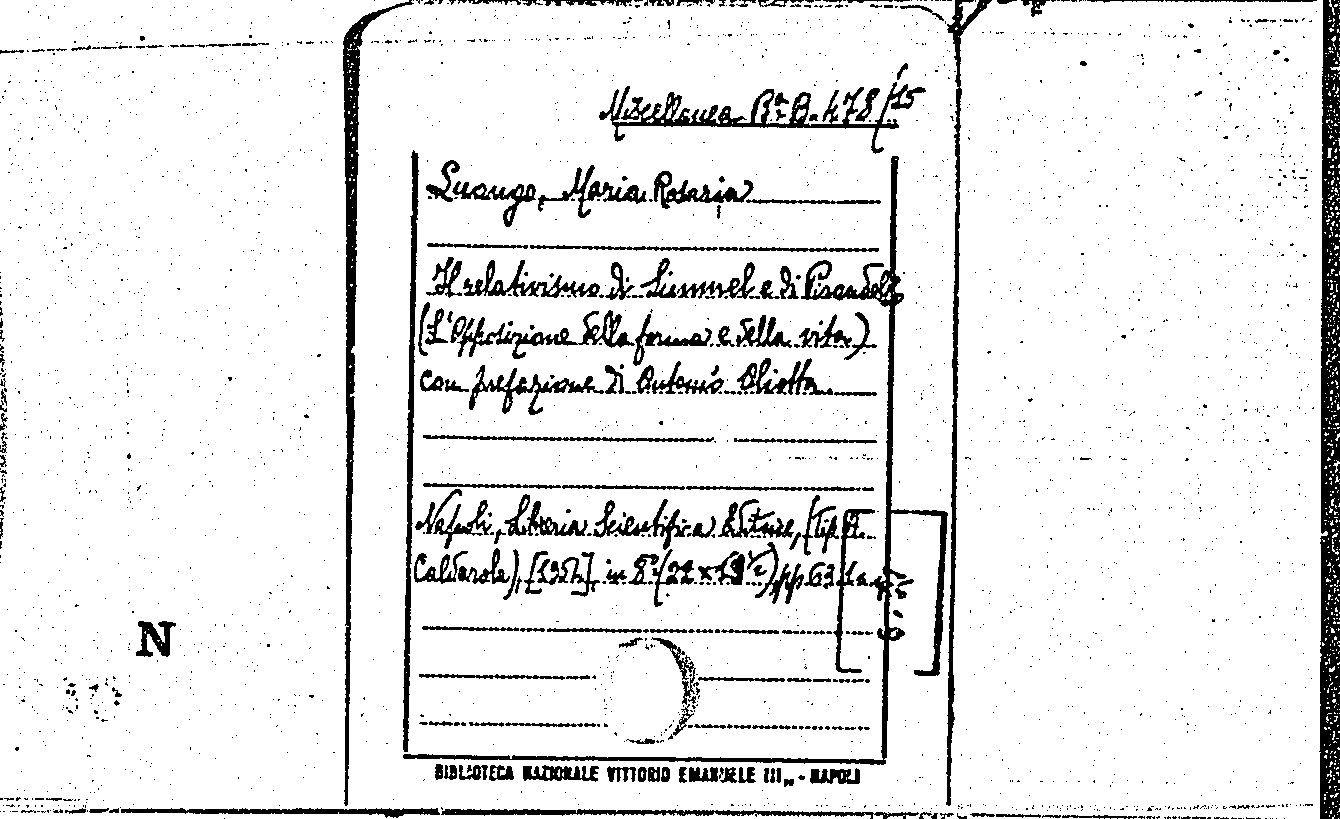 Miscellanea Bª B. 478/15
Luongo, Maria Rosaria
Il relativismo di Simmel e di Pirandello
(L'Opposizione della forma e della vita)
con prefazione di Antonio Aliotta.
Napoli, Libreria Scientifica Editrice, (Tip. A.
Caldarola), in 8° (22 x 13½) pp. 63.
N
BIBLIOTECA NAZIONALE VITTORIO EMANUELE III„ - NAPOLI